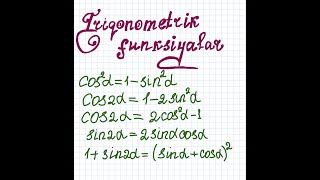 Trigonometrik
funksiyalar
cos²α=1-sin²α
cos2α = 1-2sin²α
cos2α = 2cos²α-1
sin2α = 2sinαcosα
1+sin2α = (sinα+cosα)²